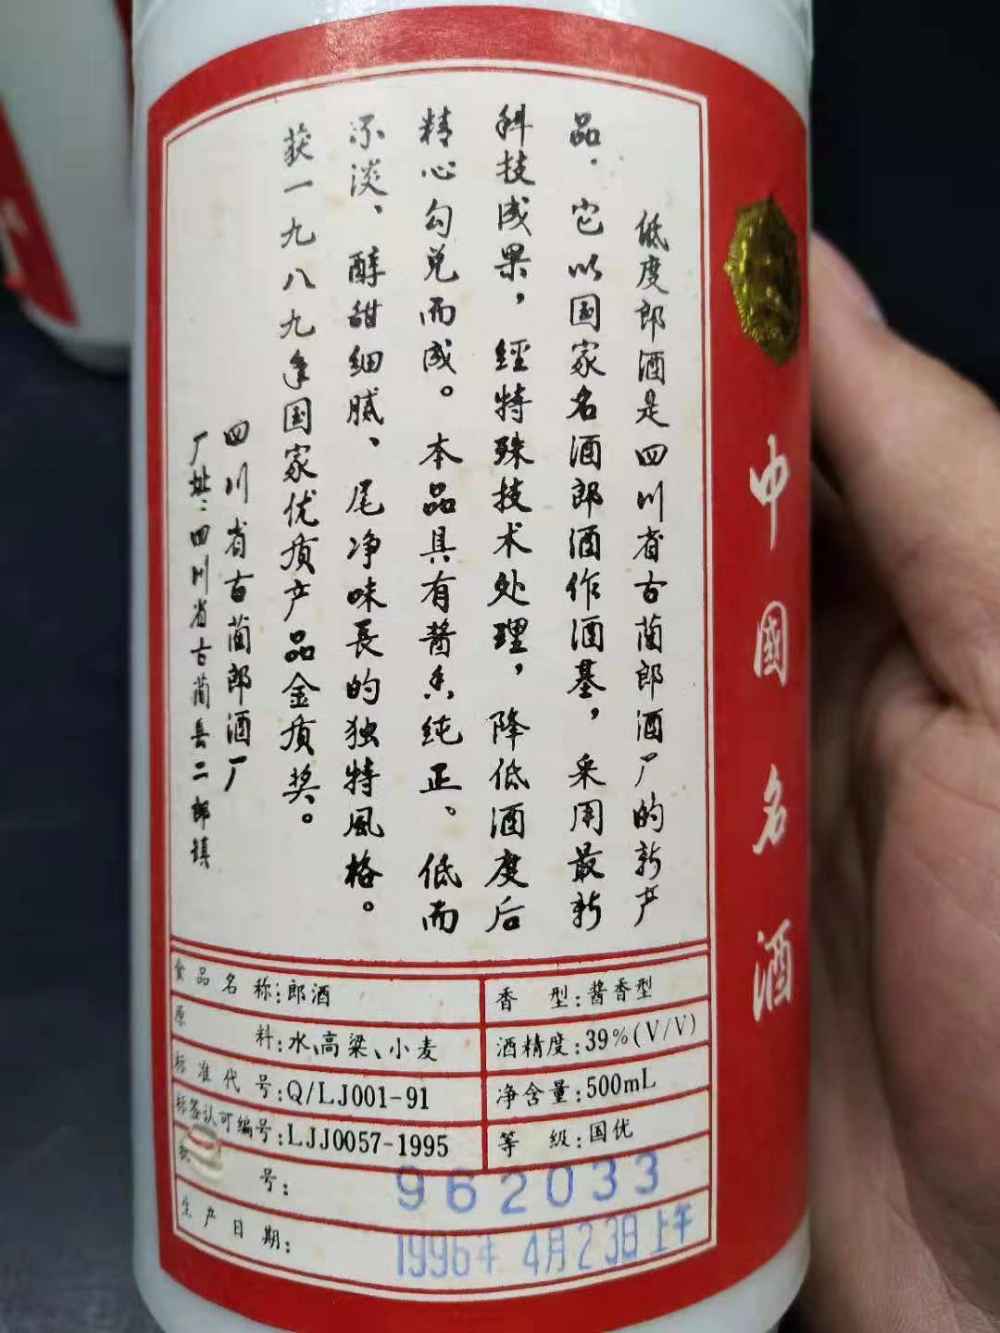 低度郎酒是四川省古蔺郎酒厂的新产
品。它以国家名酒郎酒作酒基,采用最新
科技成果,经特殊技术处理,降低酒度后
精心勾兑而成。本品具有酱香纯正。低而
不淡、醇甜细腻、尾净味長的独特風格。
获一九八九年国家优质产品金质奖。
四川省古蔺郎酒厂
厂址:四川省古蔺县二郎镇
中國名酒
食品名称:郎酒
香型:酱香型
原料:水、高粱、小麦
酒精度:39%(V/V)
标准代号:Q/LJ001-91
净含量:500mL
标签认可编号:LJJ0057-1995
等级:国优
号: 962033
生产日期: 1996年4月23日上午